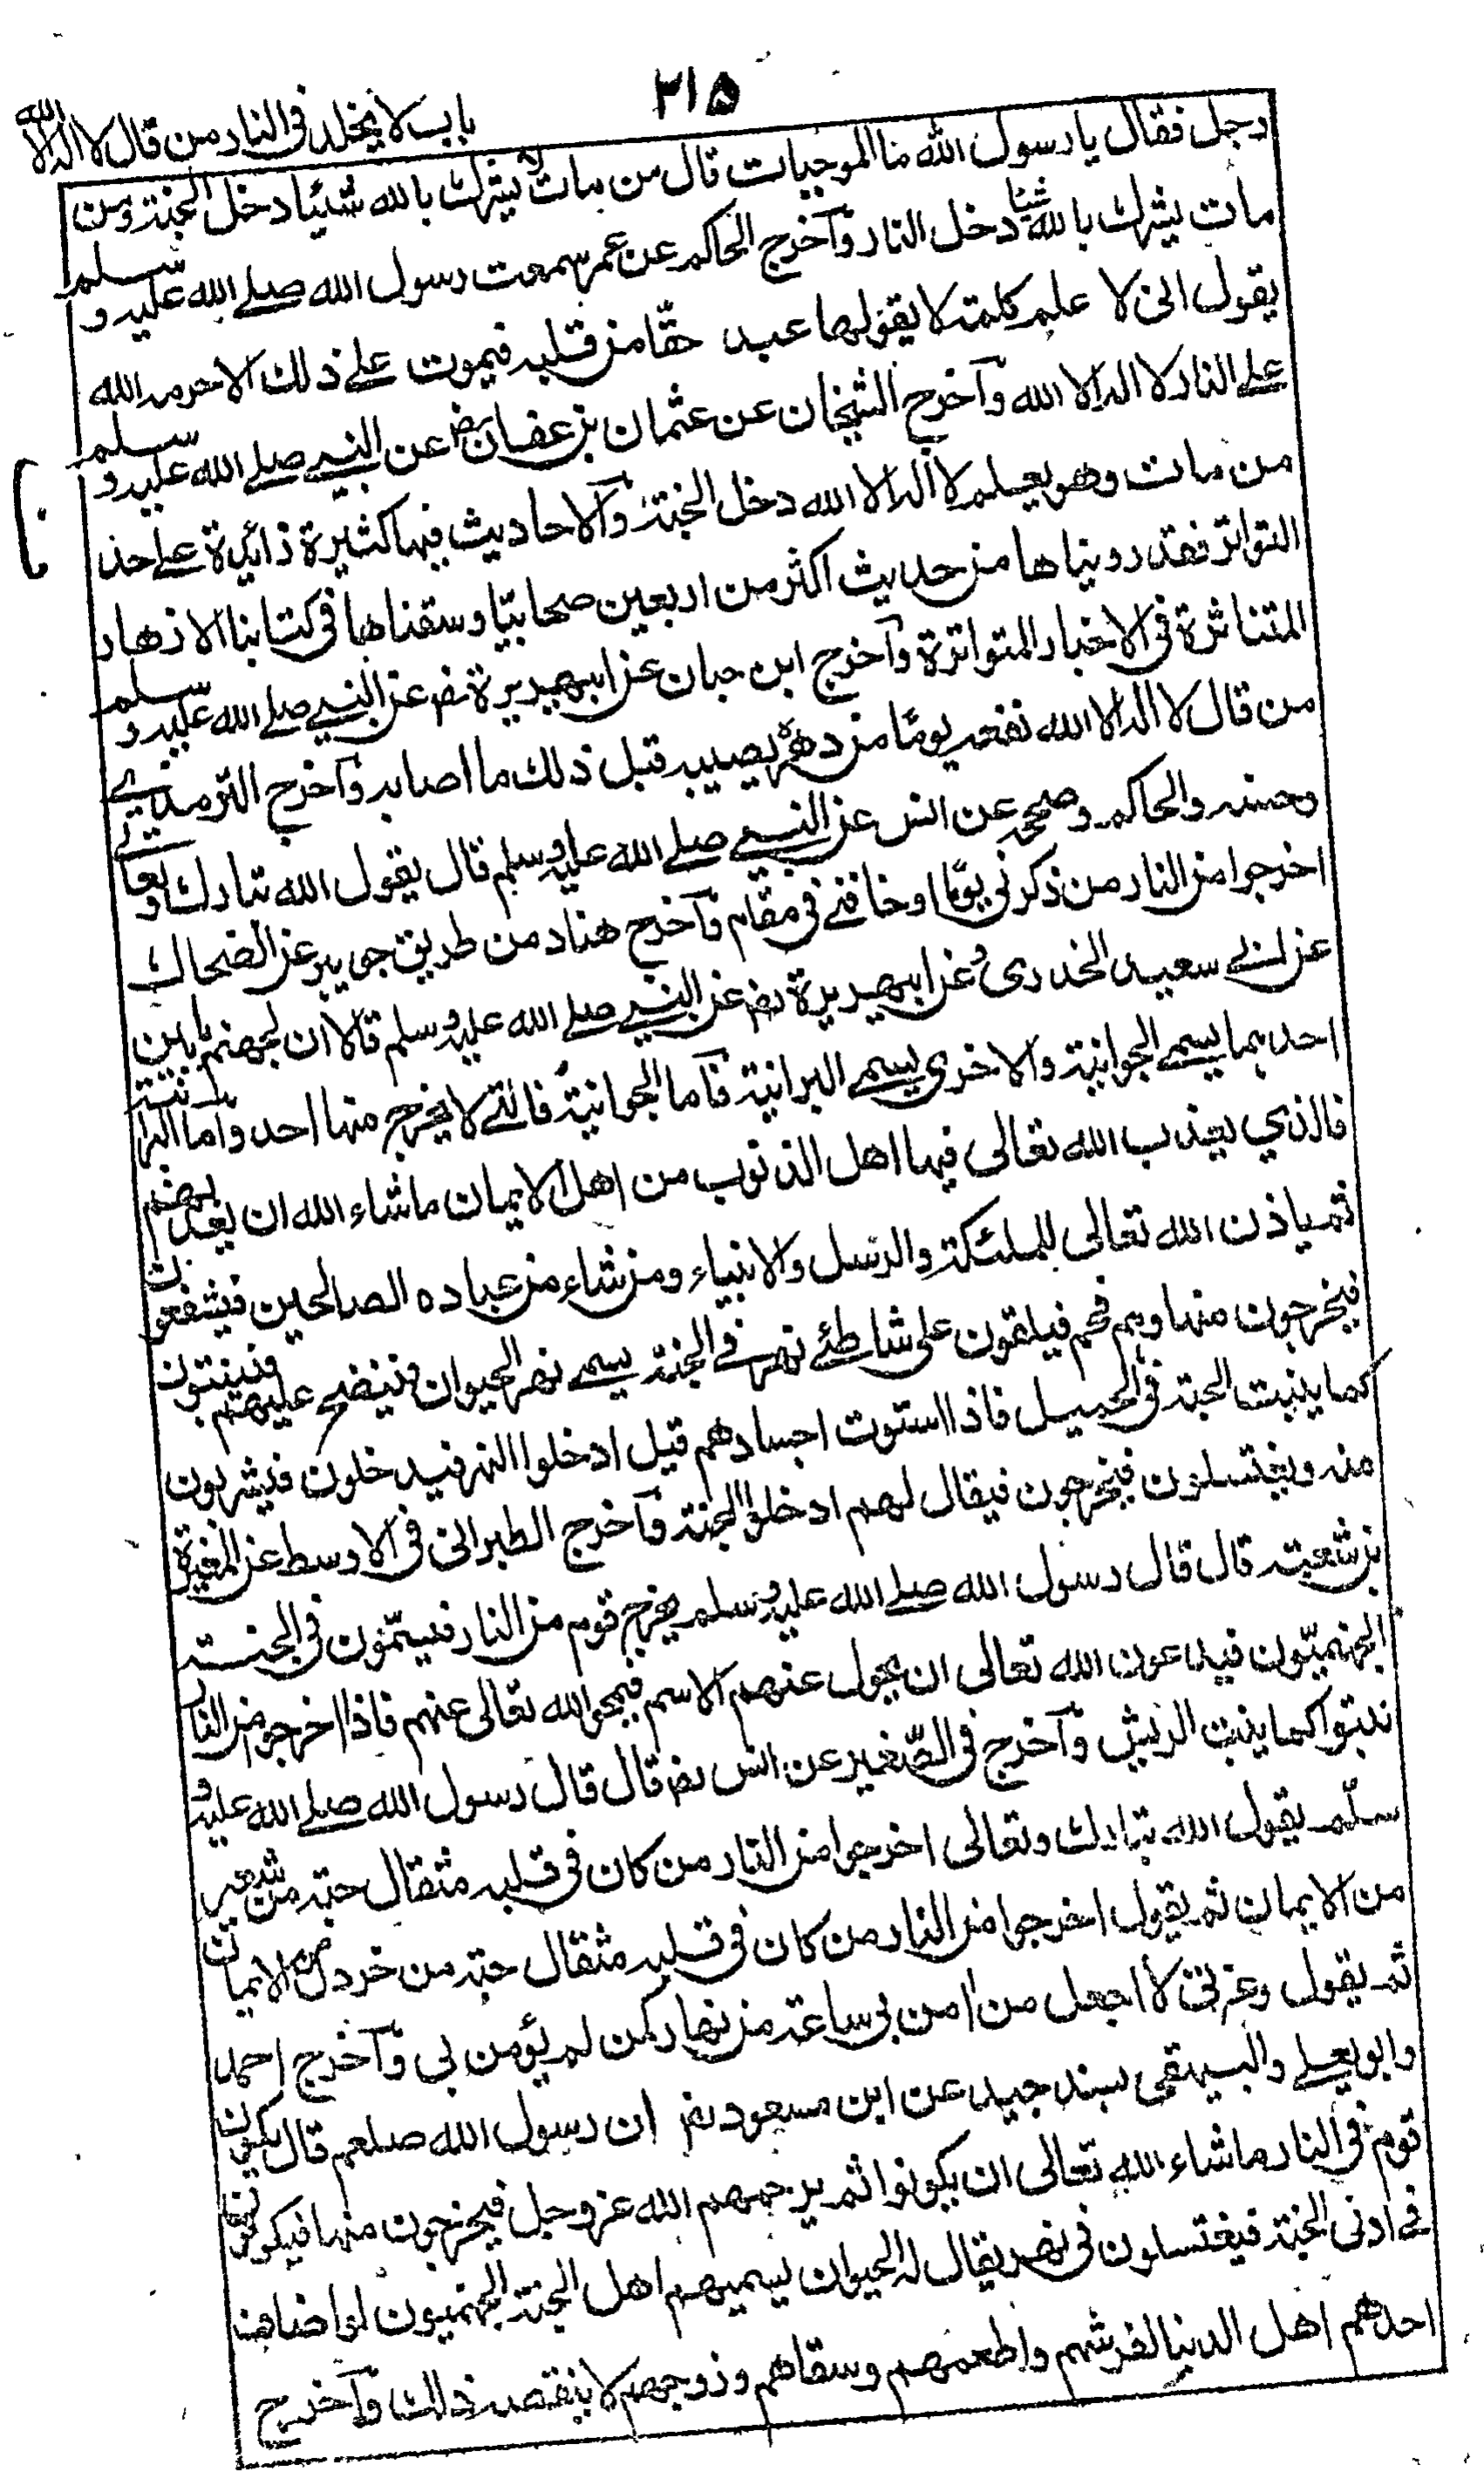 ۲۱۵
باب لا يخلد فى النار من قال لا اله الا الله
رجل فقال يا رسول الله ما الموجبات قال من مات لا يشرك بالله شيئا دخل الجنة ومن
مات يشرك بالله شيئا دخل النار وآخرج الحاكم عن عمر سمعت رسول الله صلے الله عليه وسلم
يقول انى لا علم كلمة لا يقولها عبد حقّا من قلبه فيموت علے ذلك الا حرمه الله
علے النار لا اله الا الله وآخرج الشيخان عن عثمان بن عفان رض عن النبے صلے الله عليه وسلم
من مات وهو يعلم لا اله الا الله دخل الجنة وآلاحاديث فيها كثيرة زائدة علے حد
التواتر فقد رويناها من حديث اكثر من اربعين صحابيّا وسقناها فى كتابنا الازهار
المتناثرة فى الاخبار المتواترة وآخرج ابن حبان عن ابيهريرة رض عن النبے صلے الله عليه وسلم
من قال لا اله الا الله نفعه يومًا من دهره يصيبه قبل ذلك ما اصابه وآخرج الترمذے
وحسنه والحاكم وصححه عن انس عن النبے صلے الله عليه وسلم قال يقول الله تبارك وتعالے
اخرجوا من النار من ذكرنى يومًا او خافنے فى مقام وآخرج هناد من طريق جويبر عن الضحاك
عن ابے سعيد الخدرى وعن ابيهريرة رض عن النبے صلے الله عليه وسلم قالا ان لجهنم بابين
احدهما يسمے الجوانية والاخرى يسمے البرانية فآما الجوانية فالتے لا يخرج منها احد واما البرانية
فالذي يعذب الله تعالى فيها اهل الذنوب من اهل الايمان ما شاء الله ان يعذبهم
ثم ياذن الله تعالى للملئكة والرسل والانبياء ومن شاء من عباده الصالحين فيشفعون
فيخرجون منها وهم فحم فيلقون على شاطئے نهر فے الجنة يسمے نهر الحيوان فينضح عليهم فينبتون
كما ينبت الحبة فى الحميل فاذا استوت اجسادهم قيل ادخلوا النهر فيدخلون فيشربون
منه ويغتسلون فيخرجون فيقال لهم ادخلوا الجنة وآخرج الطبرانى فى الاوسط عن المغيرة
بن شعبة قال قال رسول الله صلے الله عليه وسلم يخرج قوم من النار فيسمّون فى الجنة
الجهنميّون فيدعون الله تعالى ان يحول عنهم الاسم فيمحو الله تعالى عنهم فاذا اخرجوا من النار
نبتوا كما ينبت الريش وآخرج فى الصّغير عن انس رض قال قال رسول الله صلے الله عليه و
سلّم يقول الله تبارك وتعالى اخرجوا من النار من كان فى قلبه مثقال حبة من شعير
من الايمان ثم يقول اخرجوا من النار من كان فى قلبه مثقال حبة من خردل من الايمان
ثم يقول وعزتى لا اجعل من امن بى ساعة من نهار كمن لم يؤمن بى وآخرج احمد
وابو يعلے والبيهقى بسند جيد عن ابن مسعود رض ان رسول الله صلعم قال يكون
قوم فى النار ما شاء الله تعالى ان يكونوا ثم يرحمهم الله عز وجل فيخرجون منها فيكونون
فے ادنى الجنة فيغتسلون فى نهر يقال له الحيوان يسميهم اهل الجنة الجهنميون لو اضاف
احدهم اهل الدنيا لفرشهم واطعمهم وسقاهم وزوجهم لا ينقصه ذلك وآخرج